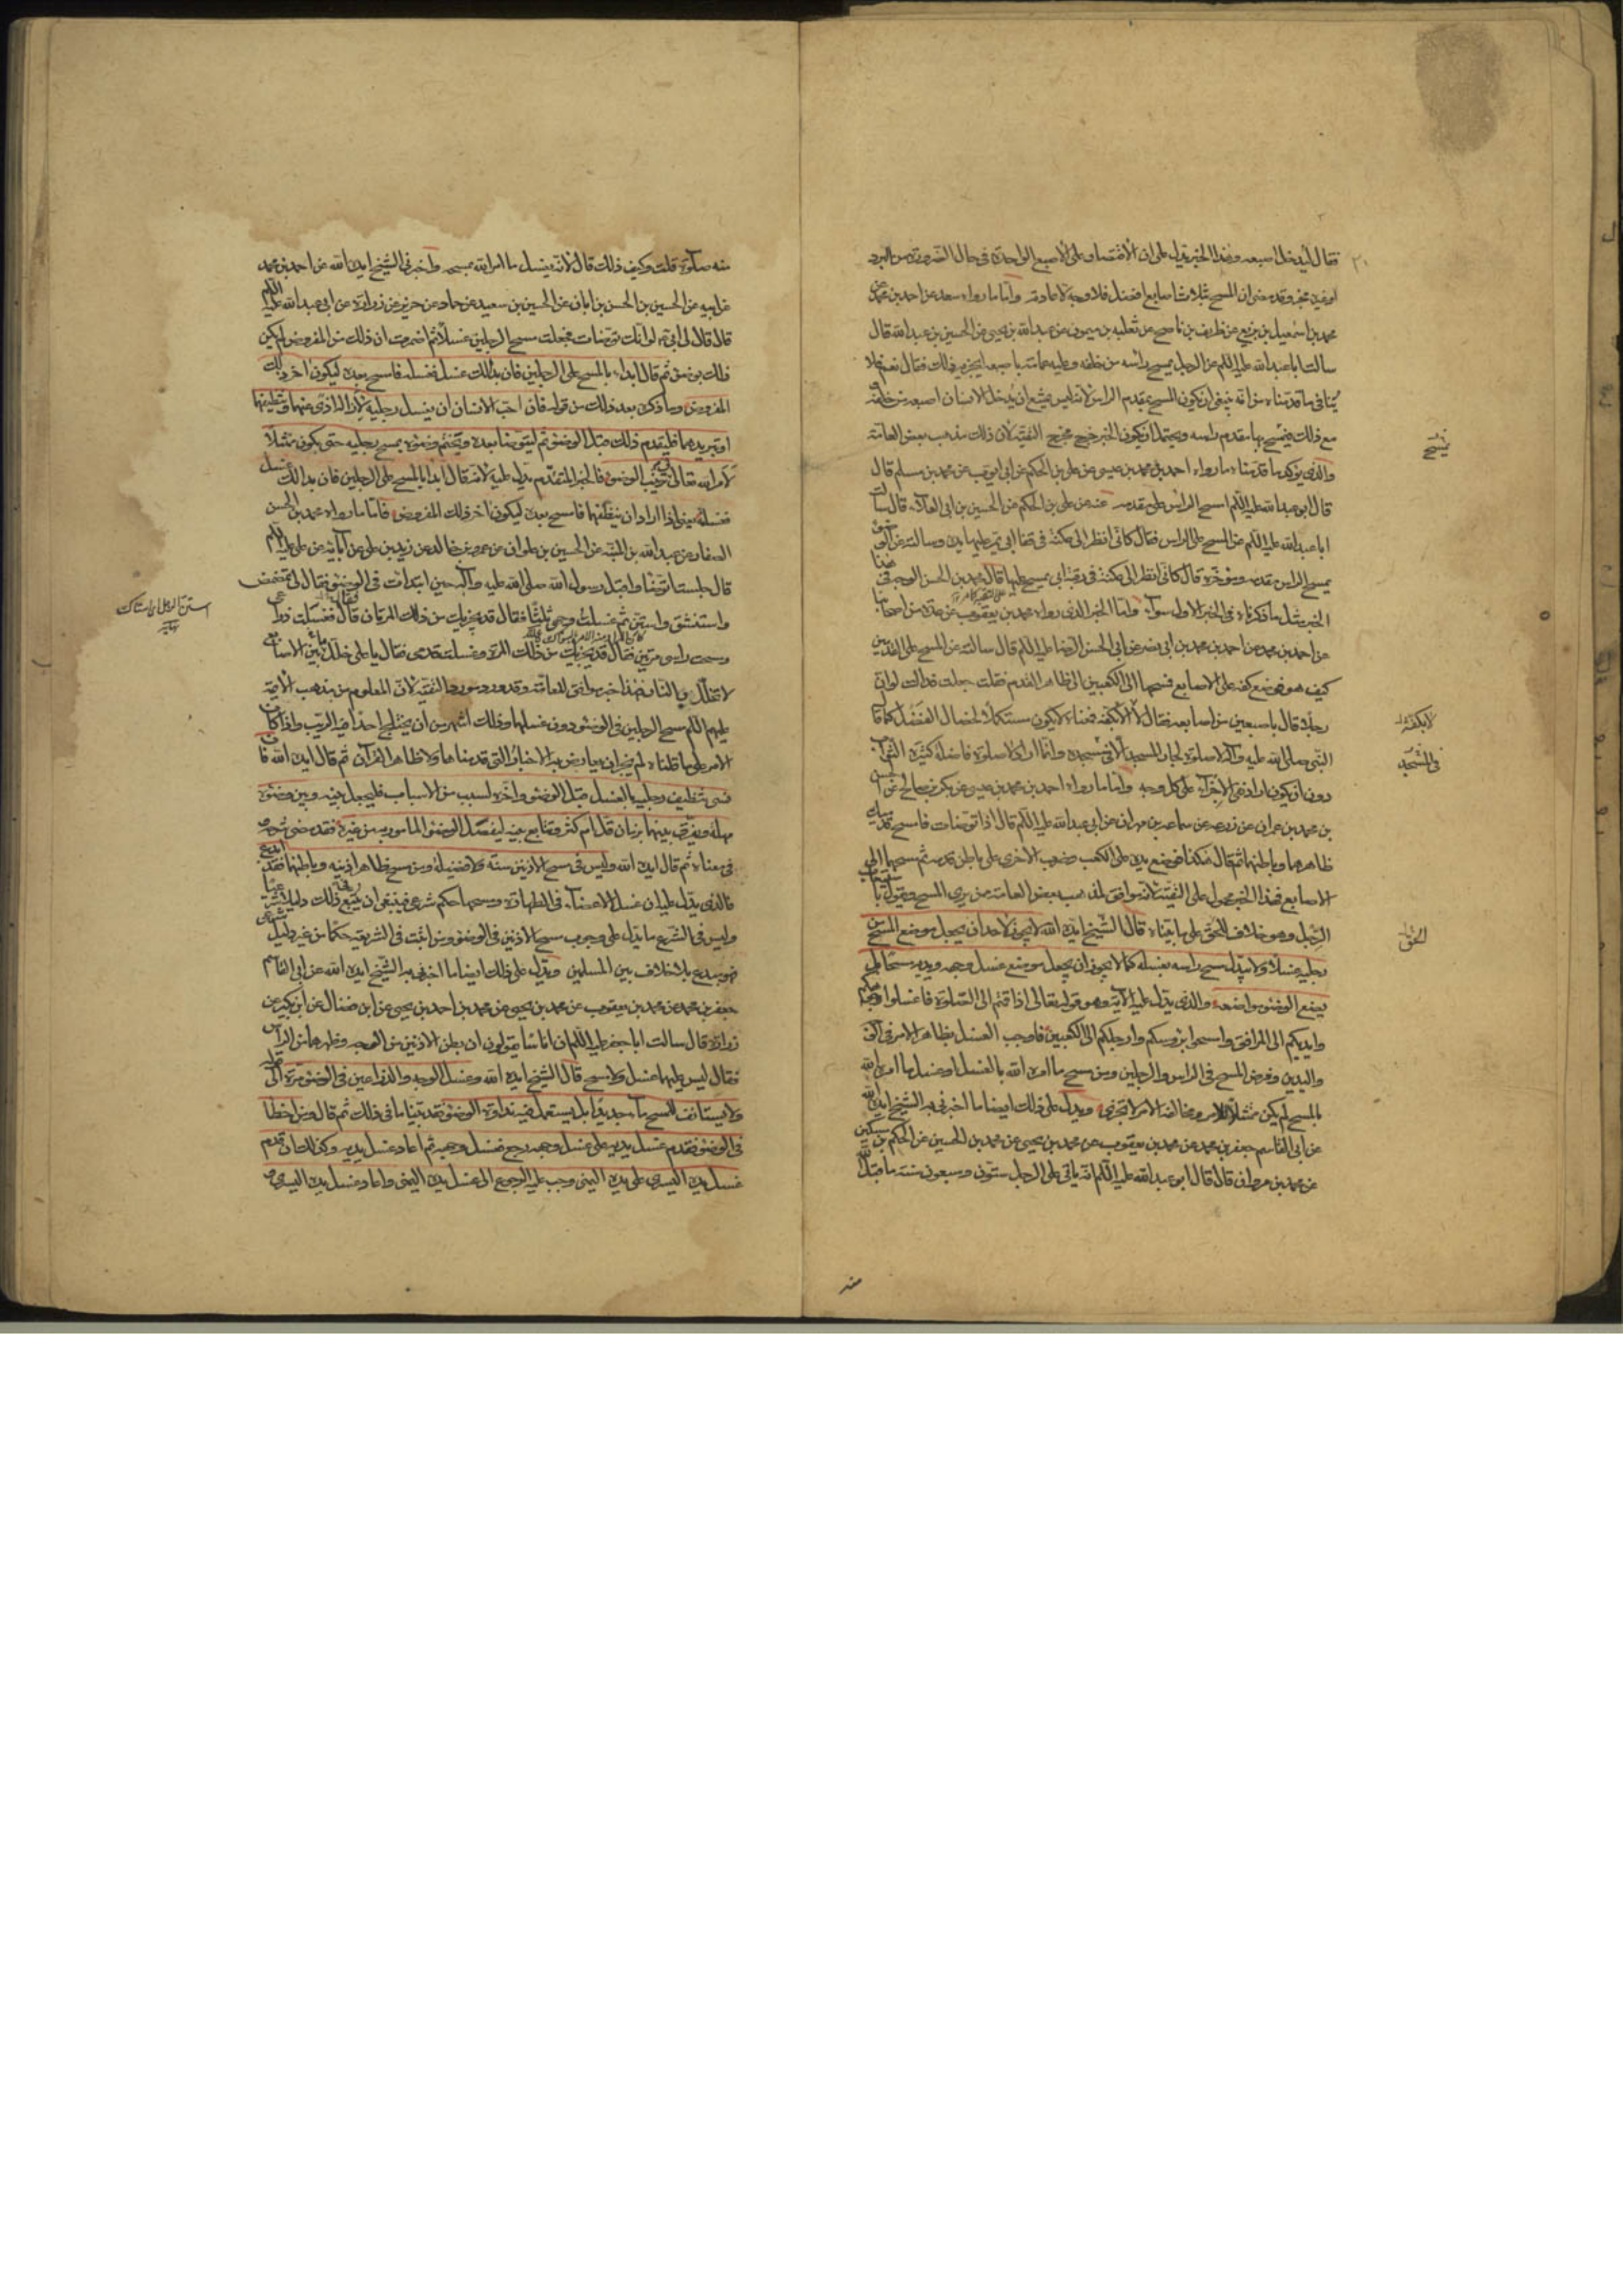 فقال ليدخل اصبعه وهذا الخبر يدل على ان الاقتصار على الاصبع الواحدة في حال الضرورة من البرد
او غيره وقد مضى ان المسح بثلاث اصابع افضل فلا وجه لاعادته واما ما رواه سعد عن احمد بن محمد عن
محمد بن اسمعيل بن بزيع عن ظريف بن ناصح عن ثعلبة بن ميمون عن عبد الله بن يحيى عن الحسين بن عبد الله قال
سالت ابا عبد الله عليه السلم عن الرجل يمسح راسه من خلفه وعليه عمامة باصبعه ايجزيه ذلك فقال نعم فلا
ينافي ما قدمناه من انه ينبغي ان يكون المسح بمقدم الراس لانه ليس يمتنع ان يدخل الانسان اصبعه من خلفه
مع ذلك فيمسح بها مقدم راسه ويحتمل ان يكون الخبر خرج مخرج التقية لان ذلك مذهب بعض العامة
يمسح
والذي يؤكد ما قدمناه ما رواه احمد بن محمد بن عيسى عن علي بن الحكم عن ابي ايوب عن محمد بن مسلم قال
قال ابو عبد الله عليه السلم امسح الراس على مقدمه عنه عن علي بن الحكم عن الحسين بن ابي العلاء قال سالت
ابا عبد الله عليه السلم عن المسح على الراس فقال كاني انظر الى عكنة في قفا ابي يمر عليها يده وسالته عن الوضوء
يمسح الراس مقدمه ومؤخره قال كاني انظر الى عكنة في رقبة ابي يمسح عليها قال محمد بن الحسن الوجه في هذا
الخبر مثل ما ذكرناه في الخبر الاول سواء واما الخبر الذي رواه محمد بن يعقوب عن عدة من اصحابنا
عن احمد بن محمد عن احمد بن محمد بن ابي نصر عن ابي الحسن الرضا عليه السلم قال سالته عن المسح على القدمين
كيف هو فوضع كفه على الاصابع فمسحها الى الكعبين الى ظاهر القدم فقلت جعلت فداك لو ان
رجلا قال باصبعين من اصابعه فقال لا الا بكفه فمعناه لا يكون مستكملا لخصال الفضل كما قال
لا بكفه
النبي صلى الله عليه وآله لا صلوة لجار المسجد الا في مسجده وانما اراد لا صلوة فاضلة كثيرة الثواب
في المسجد
دون ان يكون اراد نفي الاجزاء على كل وجه واما ما رواه احمد بن محمد بن عيسى عن بكر بن صالح عن الحسن
بن محمد بن عمران عن زرعة عن سماعة بن مهران عن ابي عبد الله عليه السلم قال اذا توضات فامسح قدميك
ظاهرهما وباطنهما ثم قال هكذا فوضع يده على الكعب وضرب الاخرى على باطن قدمه ثم مسحهما الى
الاصابع فهذا الخبر محمول على التقية لانه موافق لمذهب بعض العامة ممن يرى المسح ويقول باستيعاب
الرجل وهو خلاف الحق على ما بيناه قال الشيخ ايده الله لا يجوز لاحد ان يجعل موضع المسح من
الحق
رجليه غسلا ولا يبدل مسح راسه بغسله كما لا يجوز ان يجعل موضع غسل وجهه ويديه مسحا بل
يضع الوضوء مواضعه والذي يدل عليه الآية وهو قوله تعالى اذا قمتم الى الصلوة فاغسلوا وجوهكم
وايديكم الى المرافق وامسحوا برؤسكم وارجلكم الى الكعبين فاوجب الغسل بظاهر الامر في الوجه
واليدين وفرض المسح في الراس والرجلين ومن مسح ما امره الله بالغسل او غسل ما امره الله
بالمسح لم يكن ممتثلا للامر ومخالفة الامر لا تجزي ويدل على ذلك ايضا ما اخبرني به الشيخ ايده الله
عن ابي القاسم جعفر بن محمد عن محمد بن يعقوب عن محمد بن يحيى عن محمد بن الحسين عن الحكم بن مسكين
عن محمد بن مروان قال قال ابو عبد الله عليه السلم انه ياتي على الرجل ستون وسبعون سنة ما قبل الله
منه
منه صلوة قلت وكيف ذلك قال لانه يغسل ما امر الله بمسحه واخبرني الشيخ ايده الله عن احمد بن محمد
عن ابيه عن الحسين بن الحسن بن ابان عن الحسين بن سعيد عن حماد عن حريز عن زرارة عن ابي عبد الله عليه السلم
قال قال لي لو انك توضات فجعلت مسح الرجلين غسلا ثم اضمرت ان ذلك من المفروض لم يكن
ذلك بوضوء ثم قال ابداء بالمسح على الرجلين فان بدا لك غسل فغسلته فامسح بعده ليكون اخر ذلك
المفروض وما ذكره بعد ذلك من قوله فان احب الانسان ان يغسل رجليه لازالة اذى عنهما وتنظيفهما
او تبريدهما فليقدم ذلك قبل الوضوء ثم ليتوضا بعده ويختم وضوءه بمسح رجليه حتى يكون ممتثلا
لامر الله تعالى في ترتيب الوضوء فالخبر المتقدم يدل عليه لانه قال ابدا بالمسح على الرجلين فان بدا لك غسل
فغسلته يعني اذا اراد ان ينظفهما فامسح بعده ليكون اخر ذلك المفروض فاما ما رواه محمد بن الحسن
الصفار عن عبد الله بن المنبه عن الحسين بن علوان عن عمرو بن خالد عن زيد بن علي عن آبائه عن علي عليه السلم
قال جلست اتوضا واقبل رسول الله صلى الله عليه وآله حين ابتدات في الوضوء فقال لي تمضمض
واستنشق واستن ثم غسلت وجهي ثلثا فقال قد يجزيك من ذلك المرتان قال فغسلت ذراعي
استن الرجل اى استاك
نهاية
ومسحت راسي مرتين فقال قد يجزيك من ذلك المرة وغسلت قدمي فقال يا علي خلل بين الاصابع
لا تخلل بالنار فهذا خبر موافق للعامة وقد ورد مورد التقية لان المعلوم من مذهب الائمة
عليهم السلم مسح الرجلين في الوضوء دون غسلهما وذلك اشهر من ان يختلج احدا فيه الريب واذا كان
الامر على ما قلناه لم يجز ان يعارض به الاخبار التي قدمناها ولا ظاهر القرآن ثم قال ايده الله فان
نسي تنظيف رجليه بالغسل قبل الوضوء واخره لسبب من الاسباب فليجعل بينه وبين وضوئه
مهلة ويفرق بينهما بزمان قل ام كثر ولا يتابع بينه ليفصل الوضوء المامور به من غيره فقد مضى شرحه
في معناه ثم قال ايده الله وليس في مسح الاذنين سنة ولا فضيلة ومن مسح ظاهر اذنيه وباطنهما فقد ابدع
فالذي يدل عليه ان غسل الاعضاء في الطهارة ومسحها حكم شرعي فينبغي ان يتبع في ذلك دليلا شرعيا
وليس في الشرع ما يدل على وجوب مسح الاذنين في الوضوء ومن اثبت في الشريعة حكما من غير دليل شرعي
فهو مبدع بلا خلاف بين المسلمين ويدل على ذلك ايضا ما اخبرني به الشيخ ايده الله عن ابي القاسم
جعفر بن محمد عن محمد بن يعقوب عن محمد بن يحيى عن محمد بن احمد بن يحيى عن ابن فضال عن ابن بكير عن
زرارة قال سالت ابا جعفر عليه السلم ان اناسا يقولون ان بطن الاذنين من الوجه وظهرهما من الراس
فقال ليس عليهما غسل ولا مسح قال الشيخ ايده الله وغسل الوجه والذراعين في الوضوء مرة
ولا يستانف للمسح ماء جديدا بل يستعمل فيه نداوة الوضوء فقد بينا ما في ذلك ثم قال ومن اخطا
في الوضوء فقدم غسل يديه على غسل وجهه رجع فغسل وجهه ثم اعاد غسل يديه وكذلك ان قدم
غسل يده اليسرى على يده اليمنى وجب عليه الرجوع الى غسل يده اليمنى واعاد غسل يده اليسرى